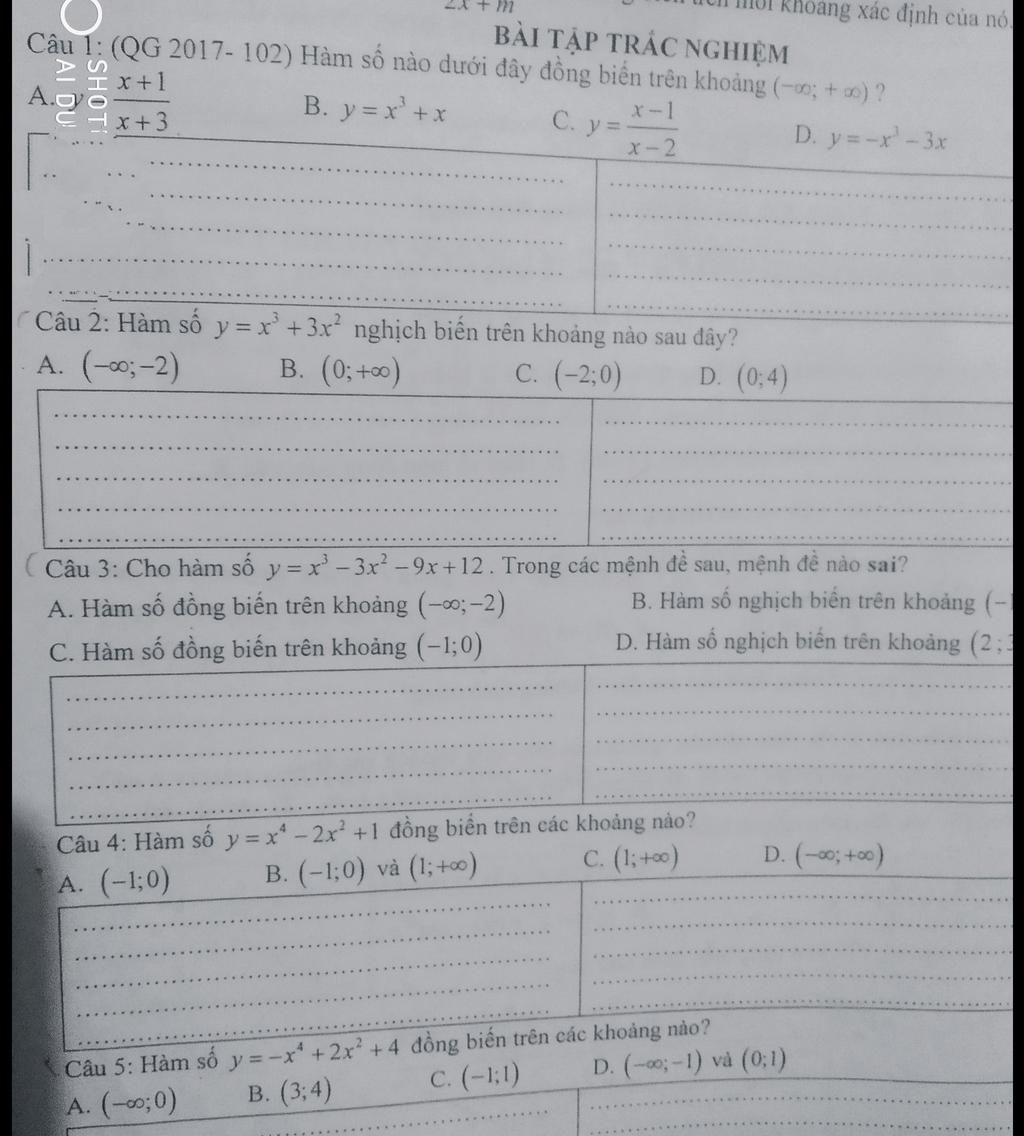 2x + m
mỗi khoảng xác định của nó.
BÀI TẬP TRẮC NGHIỆM
Câu 1: (QG 2017- 102) Hàm số nào dưới đây đồng biến trên khoảng (−∞; + ∞) ?
A. y = \frac{x+1}{x+3} B. y = x³ + x C. y = \frac{x−1}{x−2} D. y = −x³ − 3x
Câu 2: Hàm số y = x³ + 3x² nghịch biến trên khoảng nào sau đây?
A. (−∞;−2) B. (0;+∞) C. (−2;0) D. (0;4)
Câu 3: Cho hàm số y = x³ − 3x² − 9x + 12 . Trong các mệnh đề sau, mệnh đề nào sai?
A. Hàm số đồng biến trên khoảng (−∞;−2) B. Hàm số nghịch biến trên khoảng (−1
C. Hàm số đồng biến trên khoảng (−1;0) D. Hàm số nghịch biến trên khoảng (2 ; 3
Câu 4: Hàm số y = x⁴ − 2x² + 1 đồng biến trên các khoảng nào?
A. (−1;0) B. (−1;0) và (1;+∞) C. (1;+∞) D. (−∞;+∞)
Câu 5: Hàm số y = −x⁴ + 2x² + 4 đồng biến trên các khoảng nào?
A. (−∞;0) B. (3;4) C. (−1;1) D. (−∞;−1) và (0;1)
SHOT
AI DU